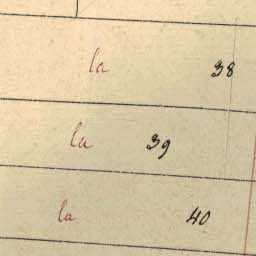 la 38
la 39
la 40